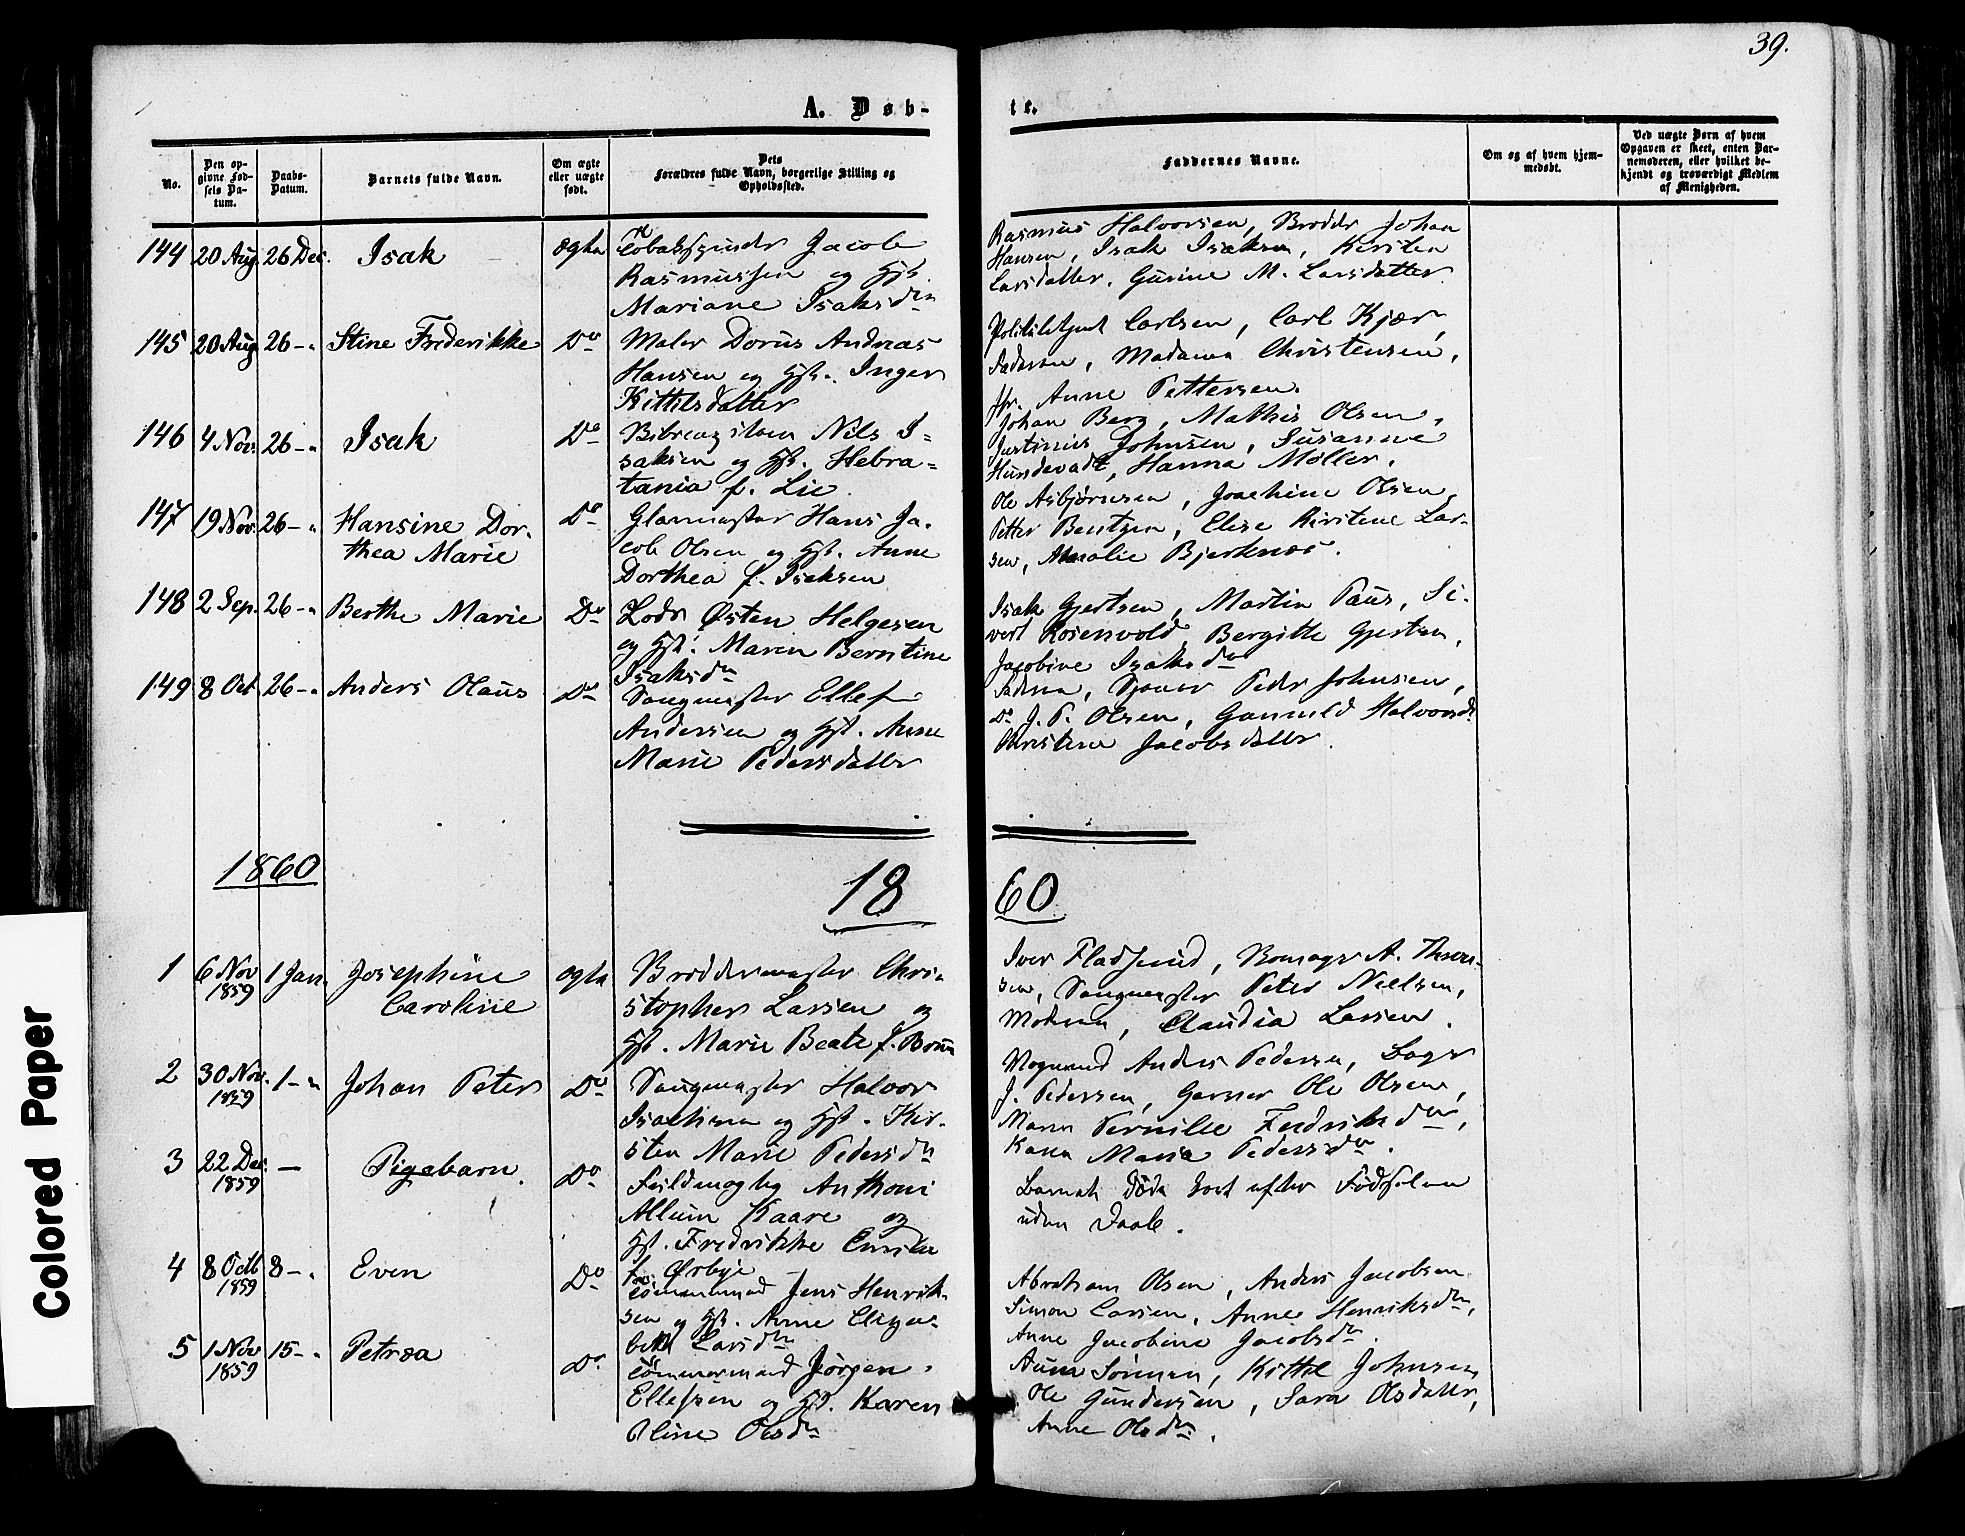 39.
A. Døb-
te.
No.
Den op-
givne Fød-
sels Da-
tum.
Daabs-
Datum.
Barnets fulde Navn.
Om ægte
eller uægte
født.
Dets
Forældres fulde Navn, borgerlige Stilling og
Opholdssted.
Faddernes Navne.
Om og af hvem hjem-
medøbt.
Ved uægte Børn af hvem
Opgaven er skeet, enten Bar-
nemoderen, eller hvilket be-
kjendt og troværdigt Medlem
af Menigheden.
144 20 Aug. 26 Dec. Isak ægte Jacob
Rasmussen og Hst.
Mariane Isaksdtr
Rasmus Halvorsen, Johan
Hansen, Isak Isaksen, Kirsten
Larsdatter, Gurine M. Larsdatter
145 20 Aug. 26 - Stine Frederikke Do Maler Dorus Andreas
Hansen og Hst. Inger
Kittilsdatter
Politibetjent Carlsen, Carl Kjær,
Faderen, Madame Christensen,
Jfr. Anne Pettersen.
146 4 Nov. 26 - Isak Do Nils I-
saksen og Hst. Hebra-
tania f. Lie.
Johan Berg, Mathis Olsen,
Justinius Johnsen, Susanne
Hundevadt, Hanna Møller.
147 19 Nov. 26 - Hansine Dor-
thea Marie Do Glarmester Hans Ja-
cob Olsen og Hst. Anne
Dorthea f. Isaksen
Ole Asbjørnsen, Joachine Olsen,
Petter Bentzen, Elise Kirstine Lar-
sen, Amalie Bjerknæs.
148 2 Sep. 26 - Berthe Marie Do Lods Østen Helgesen
og Hst. Maren Berntine
Isaksdtr
Isak Gjertsen, Martin Paus, Si-
vert Rosenvold, Bergitte Gjertsen,
Jacobine Isaksdtr
149 8 Oct 26 - Anders Olaus Do Saugmester Ellef
Andersen og Hst. Anne
Marie Pedersdatter
Faderen, Peder Johnsen,
Do J. P. Olsen, Gunnild Halvorsdr
Kirstine Jacobsdatter.
1860
18
60
1 6 Nov 1859 1 Jan. Josephine
Caroline ægte Chri-
stopher Larsen og
Hst. Marie Beate f. Bruun
Iver Fladsund, A. Thor-
sen, Saugmester Peter Nielsen,
Moderen, Claudia Larsen.
2 30 Nov. 1859 1 - Johan Peter Do Saugmester Halvor
Isachsen og Hst. Kir-
sten Marie Pedersdtr
Vognmand Anders Pedersen, Bager
J. Pedersen, Garver Ole Olsen,
Maren Pernille Fredriksdtr,
Karen Maria Pedersdtr.
3 22 Dec. 1859 - Pigebarn. Do Fuldmægtig Anthoni
Allum Kaare og
Hst. Fredrikke
f. Ørbye
Barnet døde kort efter Fødselen
uden Daab.
4 8 Octb 1859 8 - Even Do Tømmermand Jens Henrik-
sen og Hst. Anne Elisa-
beth Larsdtr
Abraham Olsen, Anders Jacobsen
Simon Larsen, Anne Henriksdtr,
Anne Jacobine Jacobsdtr.
5 1 Nov 1859 15 - Petrea Do Tømmermand Jørgen
Ellefsen og Hst. Karen
Oline Olsdtr
Sørensen, Kittil Johnsen
Ole Gundersen, Sara Olsdatter,
Anne Olsdtr.
Colored Paper